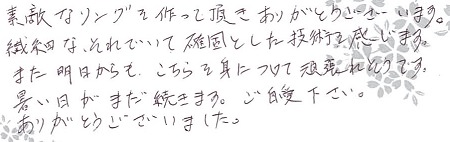 素敵なリングを作って頂きありがとうございます。
繊細な、それでいて確固とした技術を感じます。
また明日からも、こちらを身につけて頑張れそうです。
暑い日がまだ続きます。ご自愛下さい。
ありがとうございました。